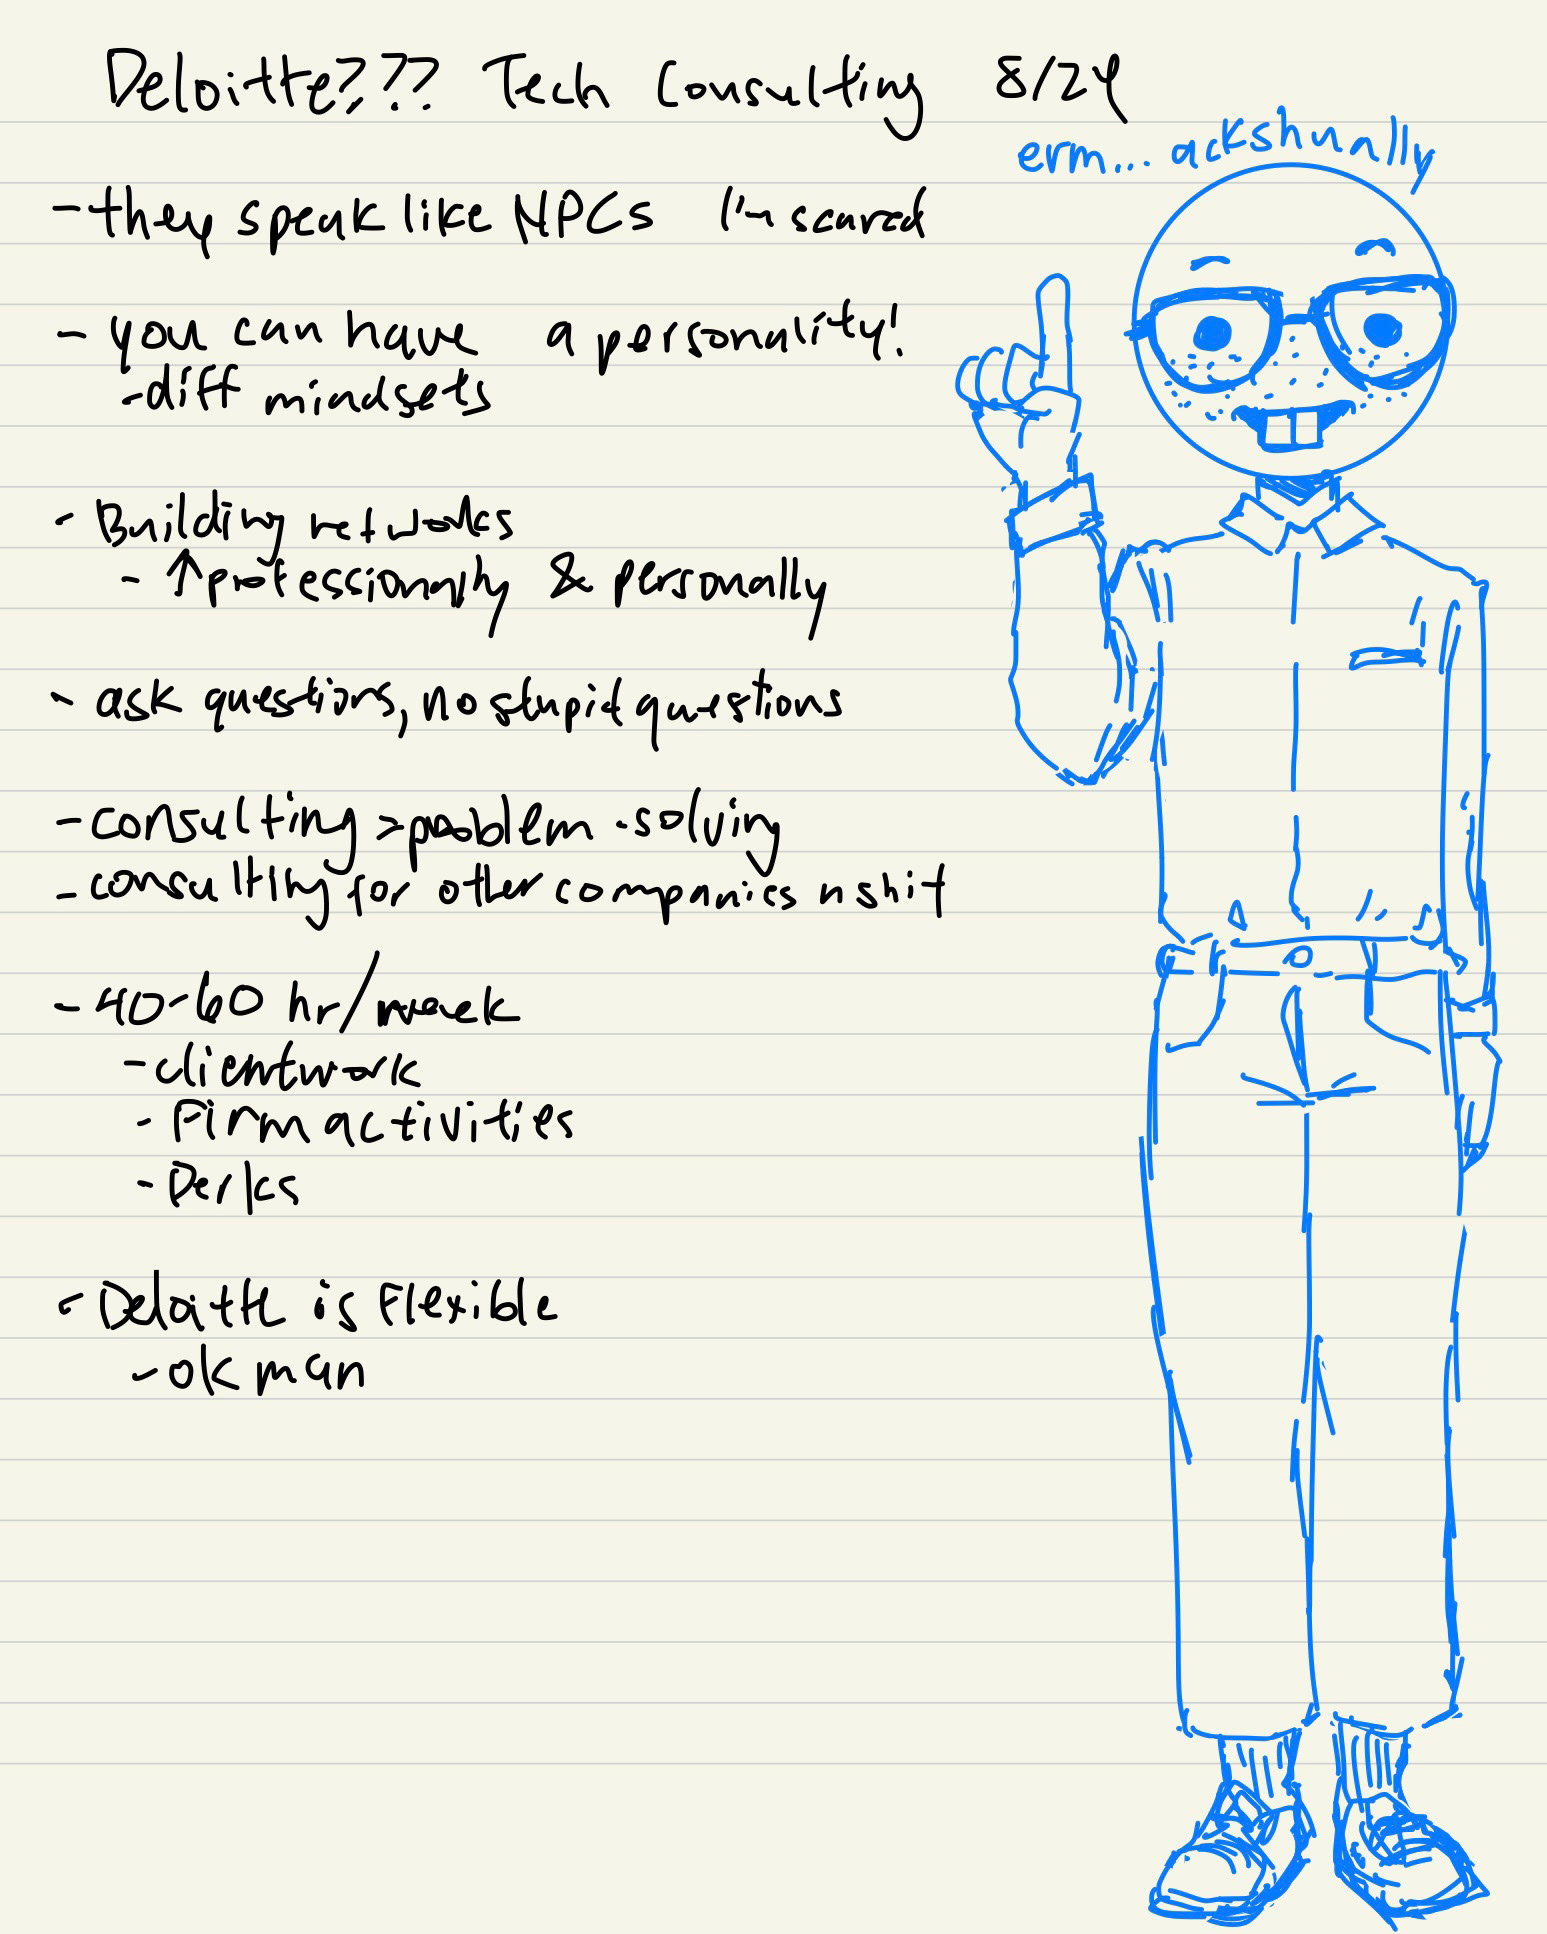 Deloitte??? Tech Consulting 8/24
erm... ackshually
- they speak like NPCs I'm scared
- you can have a personality!
- diff mindsets
- Building networks
- ↑ professionally & personally
- ask questions, no stupid questions
- consulting > problem-solving
- consulting for other companies n shit
- 40-60 hr/week
- clientwork
- Firm activities
- Perks
- Deloitte is flexible
- ok man